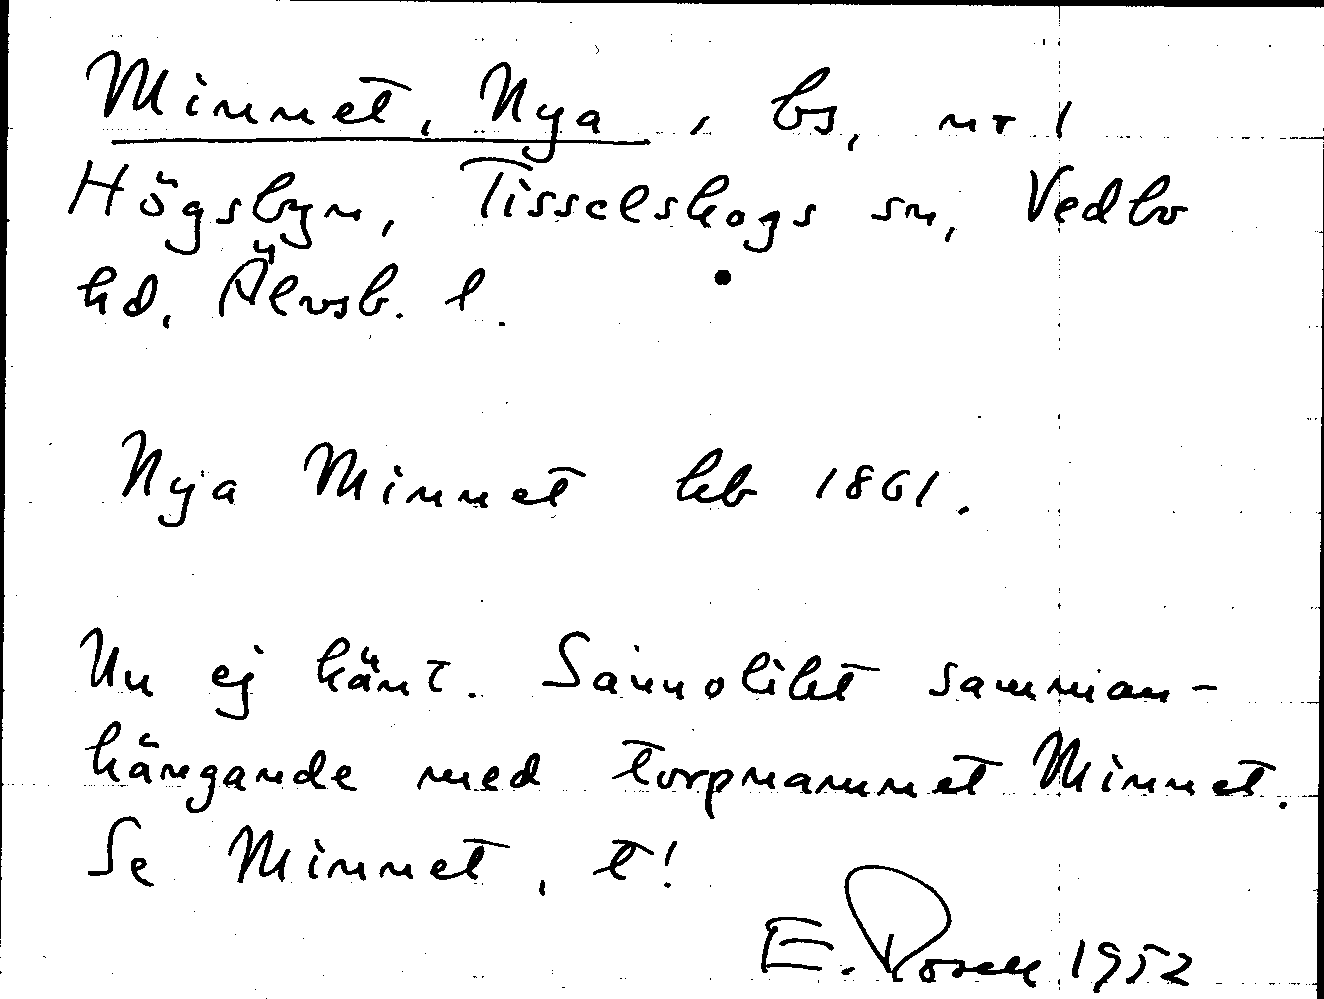 Minnet, Nya, bs, nr 1
Högsbyn, Tisselskogs sn, Vedbo
hd, Älvsb. l.
Nya Minnet hb 1861.
Nu ej känt. Sannolikt samman-
hängande med torpnamnet Minnet.
Se Minnet, t!
E. Rosell 1952